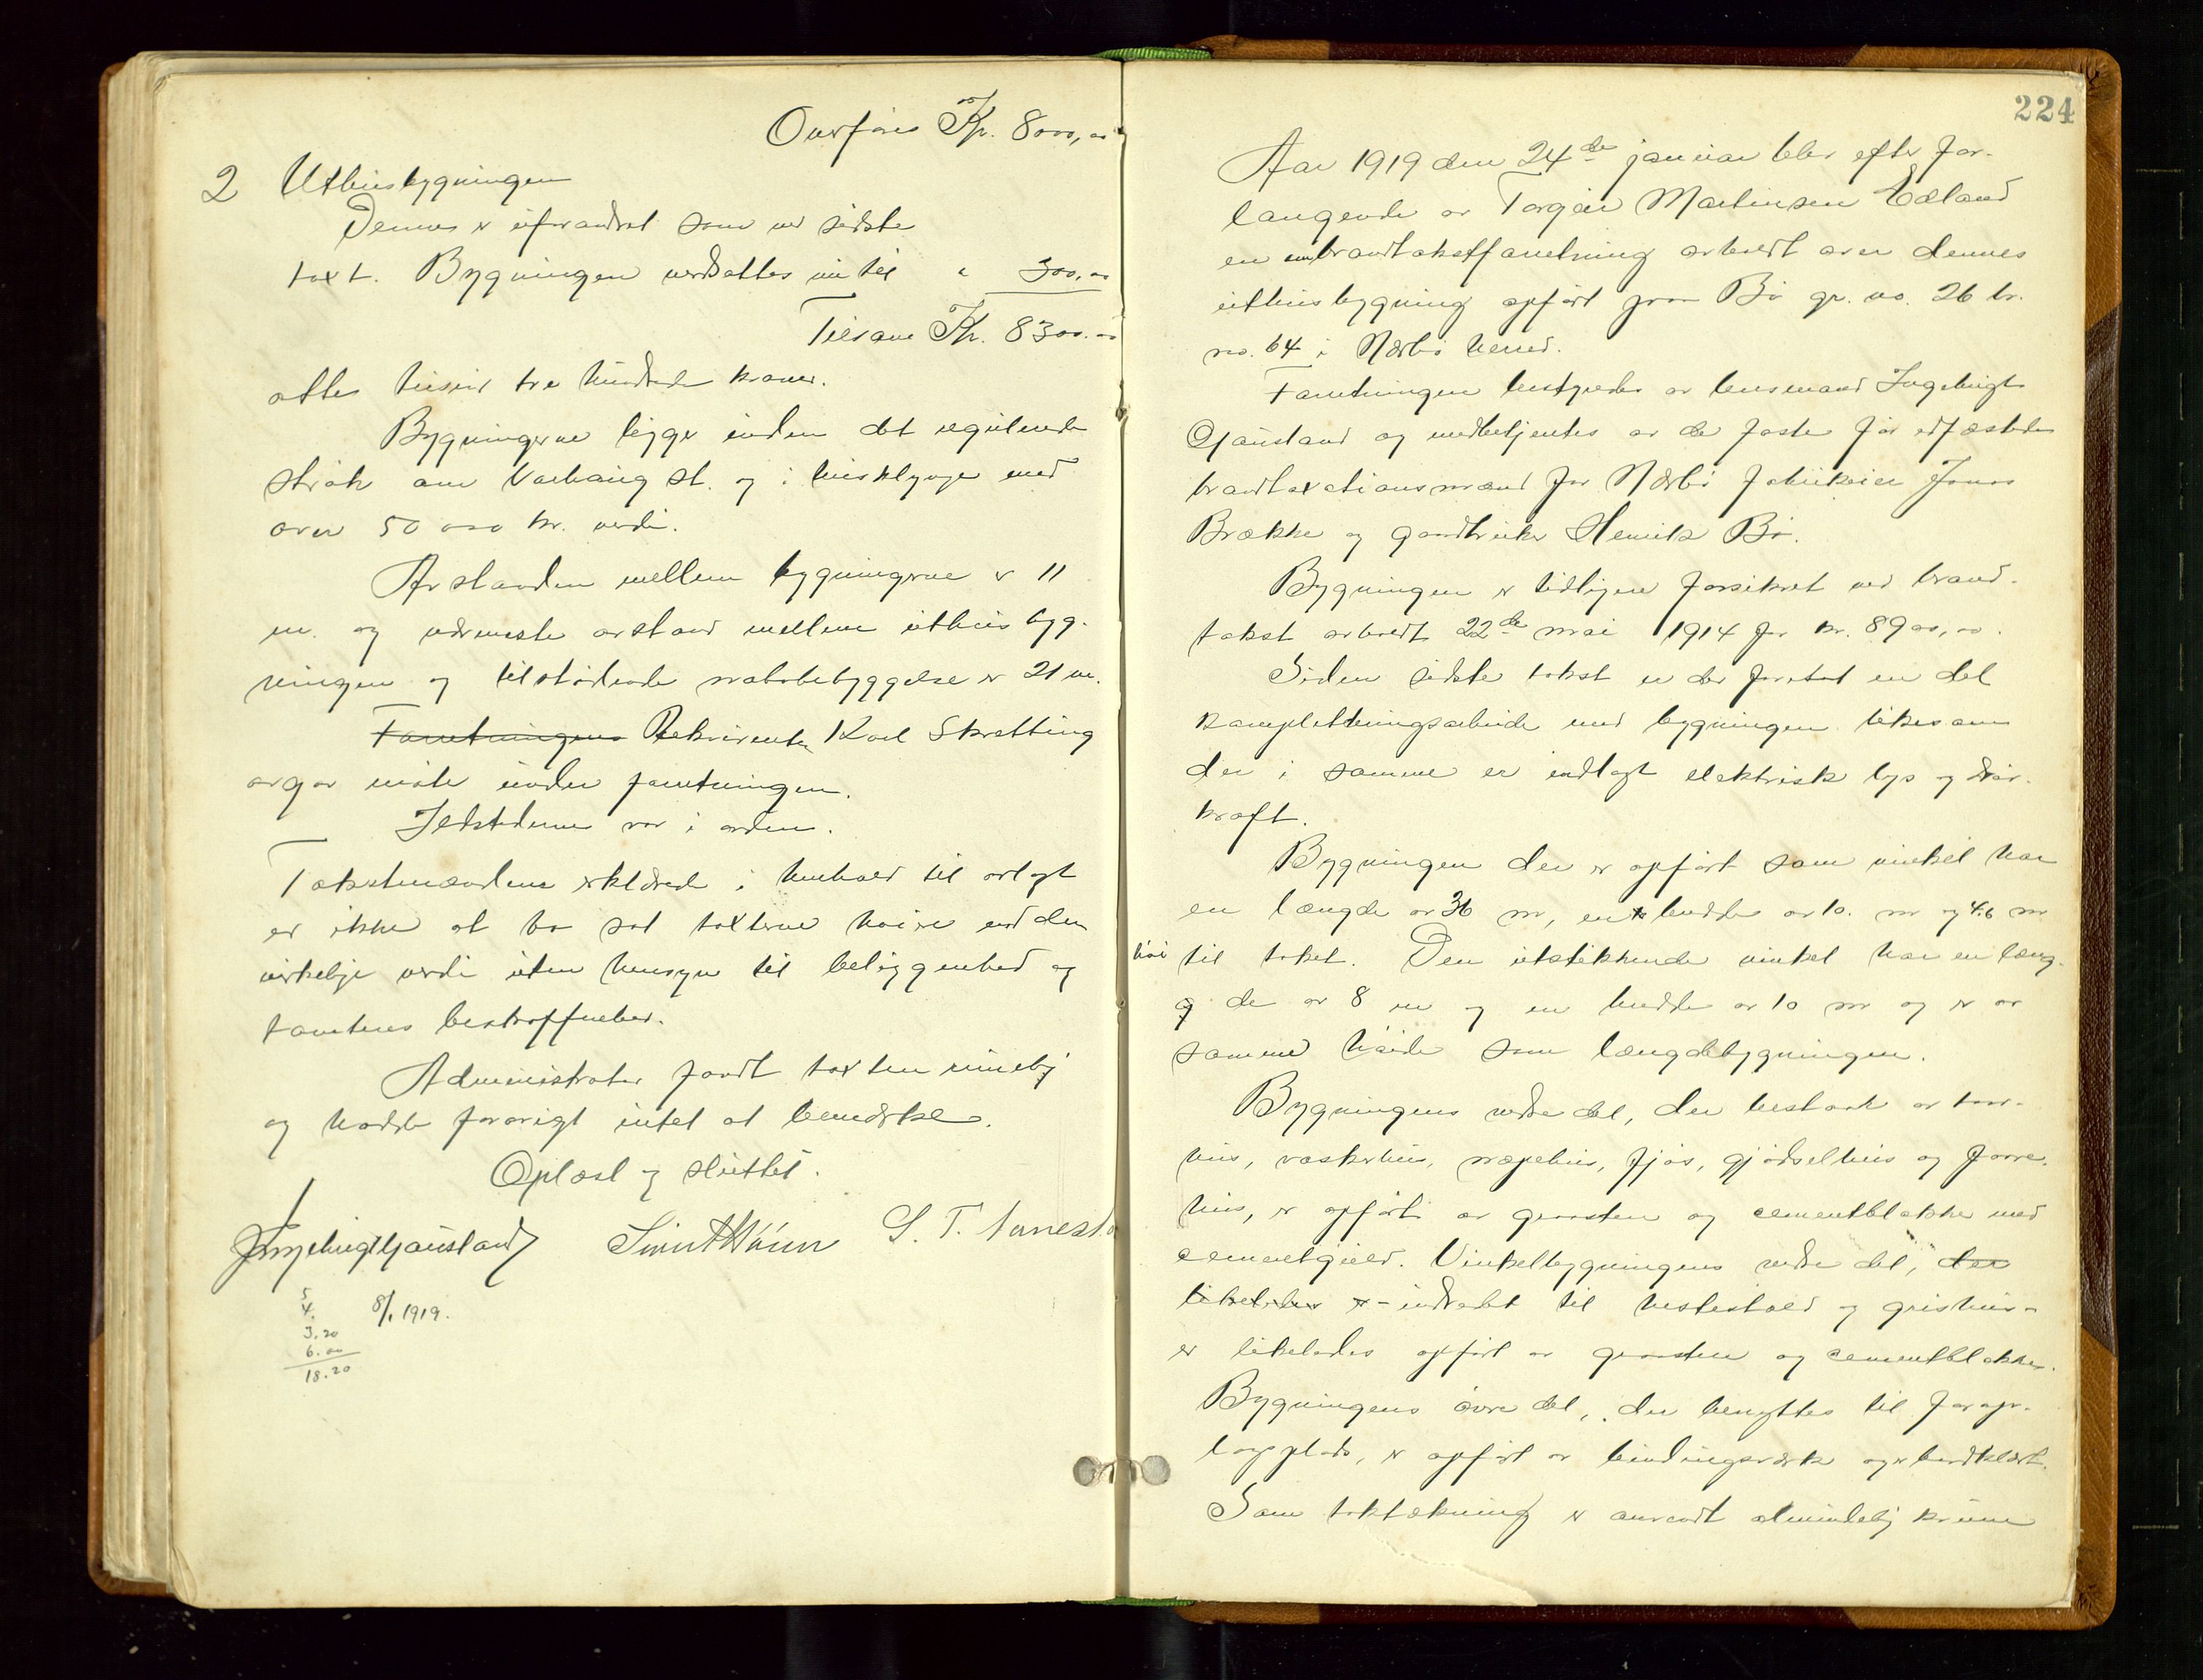 Overføres Kr. 8000,00
2 Uthusbygningen
Denne er uforandret som ved sidste
taxt. Bygningen verdsattes nu til " 300,00
Tilsam Kr. 8300.00
otte tusind tre hundrede kroner.
Bygningerne ligger inden det regulerede
strøk om Varhaug st. og i husklynge med
over 50 000 kr. verdi.
Avstanden mellem bygningerne er 11
m. og nærmeste avstand mellem uthusbyg-
ningen og tilstødende nabobebyggelse er 21 m.
Forretningens Rekvirenten Karl Skretting
avgav møte under forretningen.
Ildstederne var i orden.
Takstmændene erklærede i henhold til avlagt
ed ikke at ha sat taxterne høiere end den
virkelige verdi uten hensyn til beliggenhed og
tomtens beskaffenhet.
Administrator fandt taxten rimelig
og hadde forøvrigt intet at bemerke.
Oplæst og sluttet.
Ingebrigt Gausland S. T.
5
4. 8/1 1919.
3.20
6.00
18.20
224
Aar 1919 den 24de januar blev efter for-
langende av Torgeir Martinsen Edland
en ombrandtakstforretning avholdt over dennes
uthusbygning opført paa Bø gr. no. 26 br.
no. 64 i Nærbø herred.
Forretningen bestyredes av lensmand Ingebrigt
Gausland og medbetjentes av de faste før edfæstede
brandtaxationsmænd for Nærbø fabrikeier Jonas
Brække og gaardbruker Henrik Bø.
Bygningen er tidligere forsikret ved brand-
takst avholdt 22de mai 1914 for kr. 8900,00.
Siden sidste takst er der foretat en del
kompletteringsarbeide med bygningen likesom
der i samme er indlagt elektrisk lys og driv-
kraft.
Bygningen der er opført som vinkel har
en længde av 36 m, en bredde av 10. m og 4.6 m
høi til taket. Den utstikkende vinkel har en læng-
de av 8 m og en bredde av 10 m og er av
samme høide som længdebygningen.
Bygningens nedre del, der bestaar av tørr-
hus, vaskerhus, næpehus, fjøs, gjødselhus og faare-
hus, er opført av graasten og cementblokke med
cementgulv. Vinkelbygningens nedre del, der
likeledes er - indredet til hestestald og grishus -
er likeledes opført av graasten og cementblokke.
Bygningens øvre del, der benyttes til forop-
lagsplads, er opført av bindingsverk og er bordklædt.
Som taktækning er anvendt almindelig krum